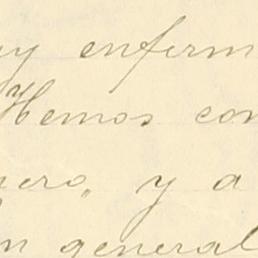 uy enferm
Hemos con
nero, y a
ón general